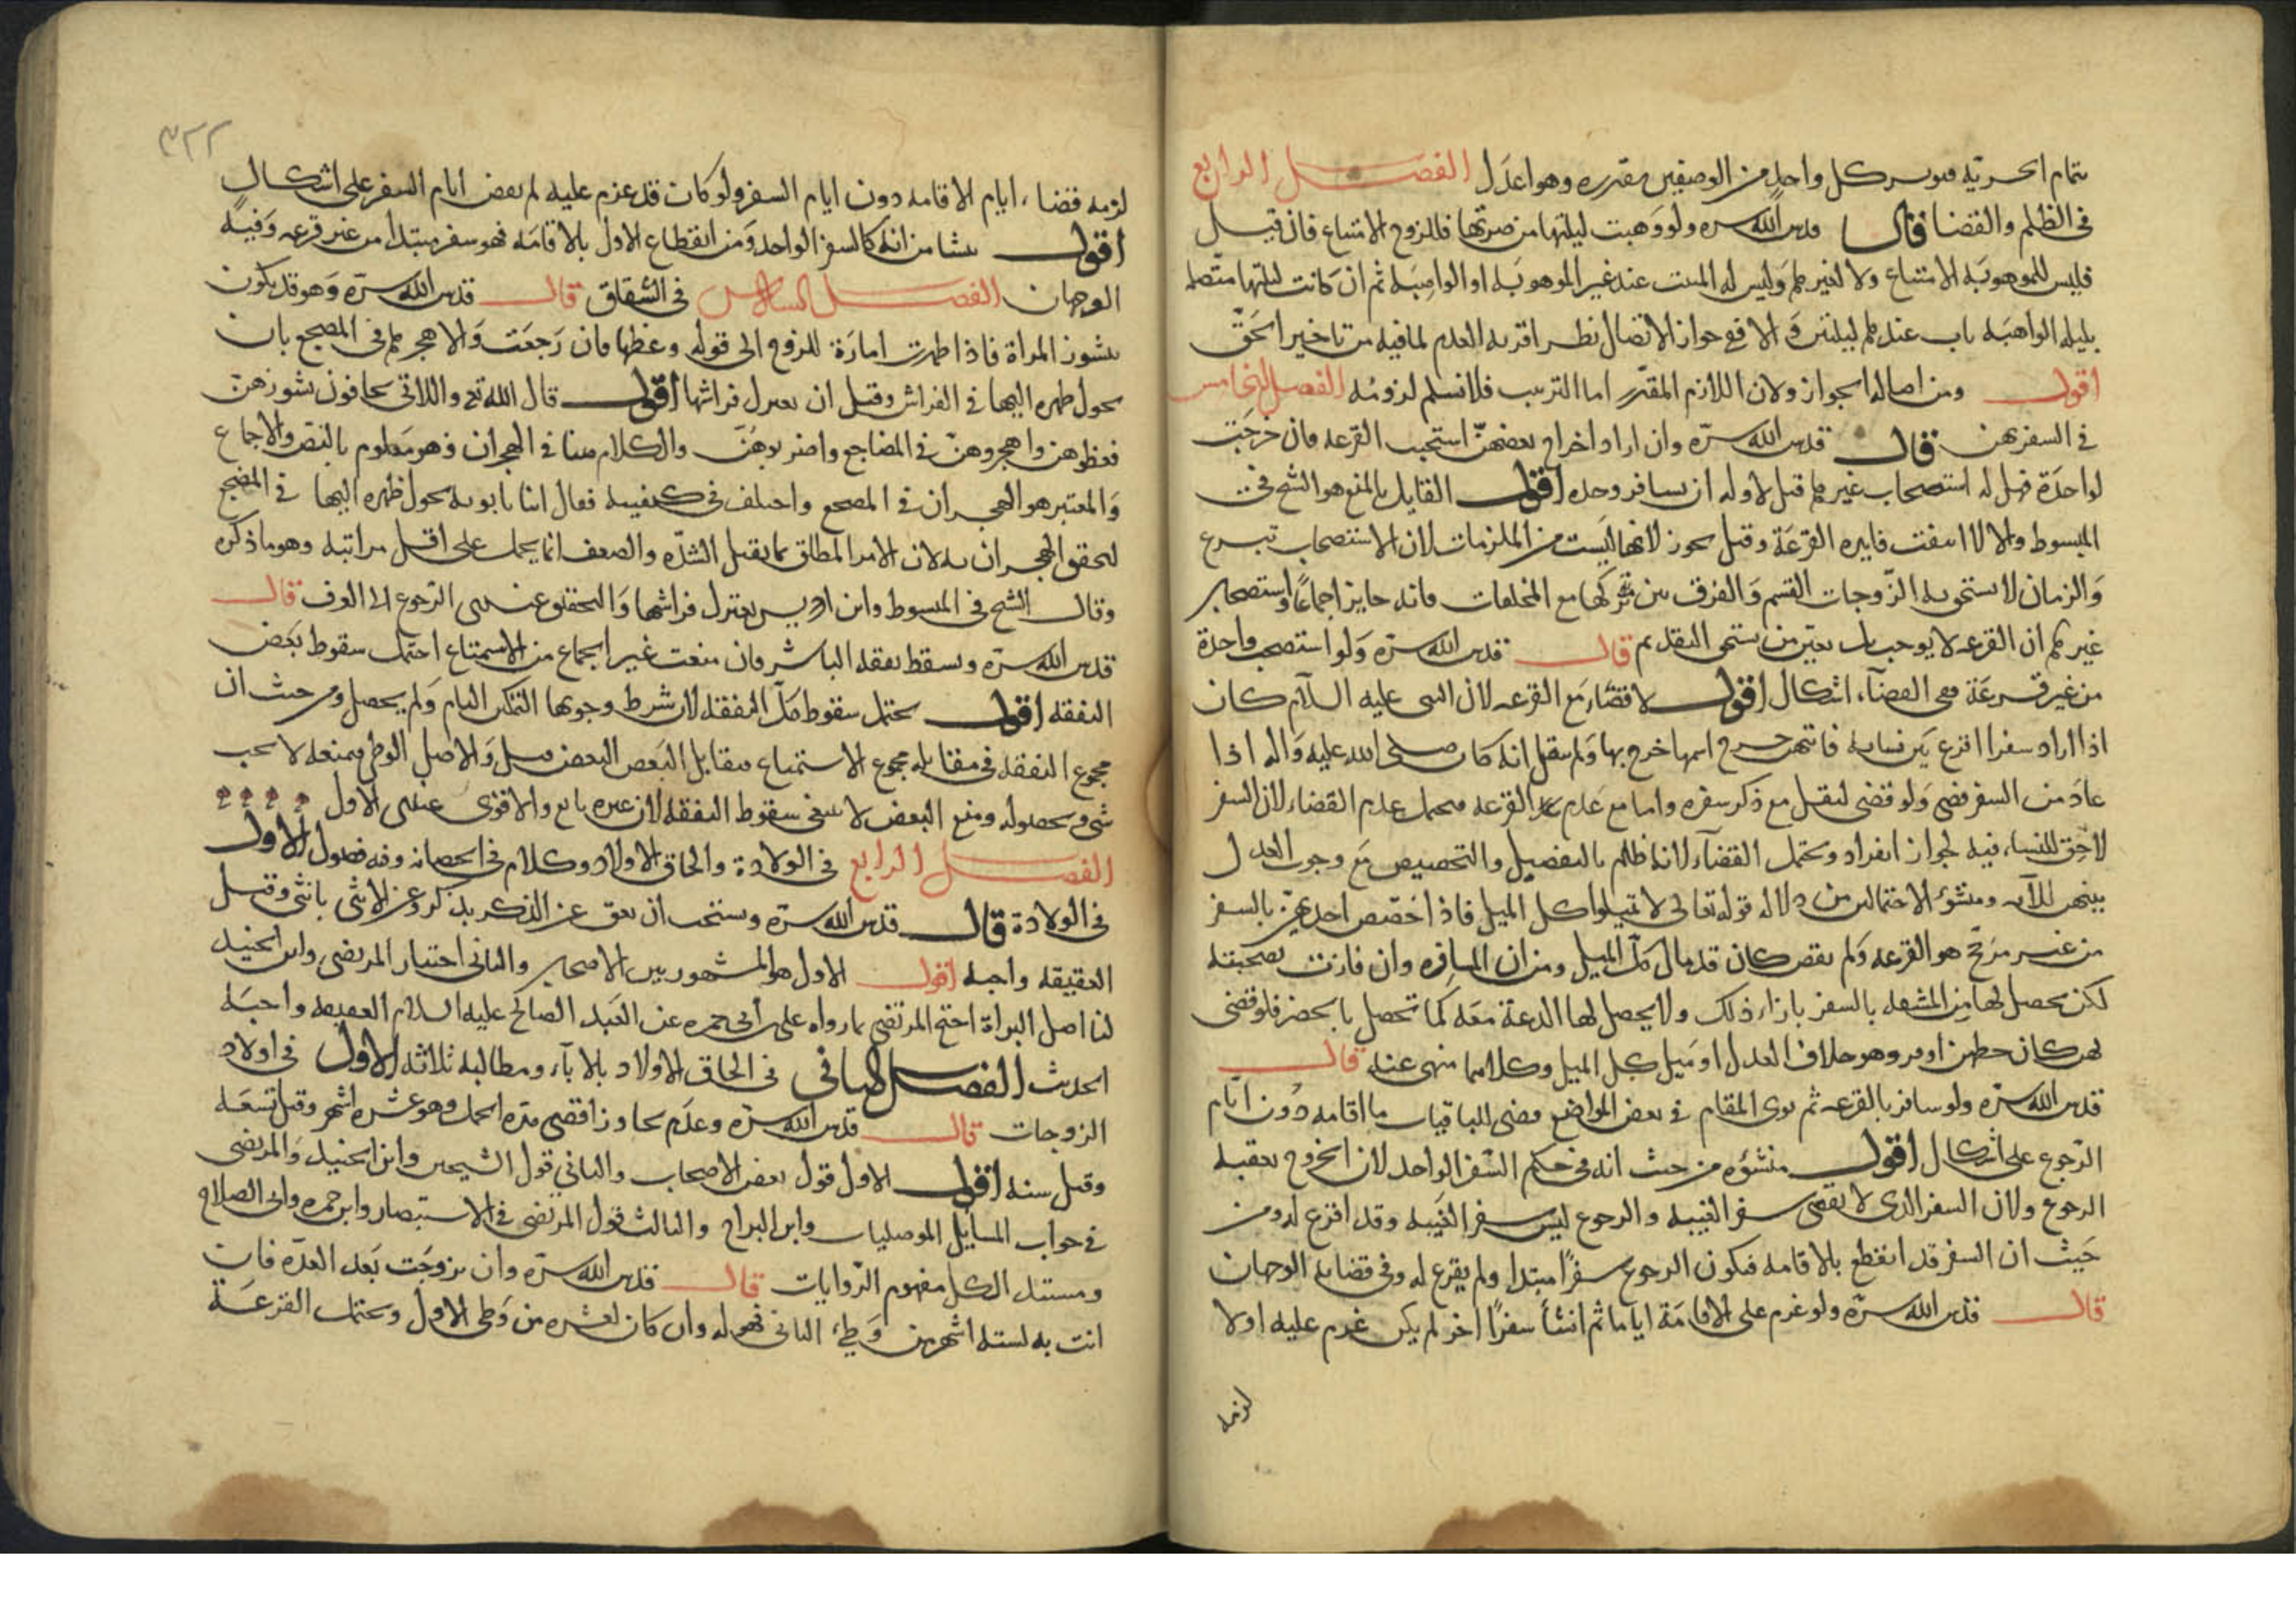 بتمام الحرية فيوفر كل واحد من الوصفين مقدره وهو اعدل الفصل الرابع
في الظلم والقضا قال قدس الله سره ولو وهبت ليلتها من ضرتها فللزوج الامتناع فان قبل
فليس للموهوبة الامتناع ولا لغيرهم وليس له المبيت عند غير الموهوبة او الواهبة ثم ان كانت ليلتها متصلة
بليلة الواهبة بات عندهم ليلتين والا فع جواز الاتصال نظر اقربه العدم لما فيه من تاخير الحق
اقول ومن اصالة الجواز ولان اللازم المقدر اما الترتيب فلا نسلم لزومه الفصل الخامس
في السفر بهن قال قدس الله سره وان اراد اخراج بعضهن استحب القرعة فان خرجت
لواحدة فهل له استصحاب غيرهم قيل لا وله ان يسافر وحده اقول القايل بالمنع هو الشيخ في
المبسوط والا لا انتفت فايدة القرعة وقيل يجوز لانها ليست من الملزمات لان الاستصحاب تبرع
والزمان لا يستحق به الزوجات القسم والفرق بين تركها مع المخلفات فانه جايز اجماعا واستصحاب
غيرهم ان القرعة لا يوجب بل يعين من يستحق التقديم قال قدس الله سره ولو استصحب واحدة
من غير قرعة ففي القضاء اشكال اقول لا قضاء مع القرعة لان النبي عليه السلام كان
اذا اراد سفرا اقرع بين نسايه فايتهن خرج اسمها خرج بها ولم ينقل انه كان صلى الله عليه واله اذا
عاد من السفر قضى ولو قضى لنقل مع ذكر سفره واما مع عدم القرعة فيحمل عدم القضاء لان السفر
لا حق للنساء فيه لجواز انفراده ويحتمل القضاء لانه ظلم بالتفضيل والتخصيص مع وجوب العدل
بينهن للاية ومنشؤ الاحتمالين من دلالة قوله تعالى لا تميلوا كل الميل فاذا خصص احديهن بالسفر
من غير مرجح هو القرعة ولم يقض كان قد مال كل الميل ومن ان المسافرة وان فازت بصحبته
لكن يحصل لها من المشقة بالسفر بازاء ذلك ولا يحصل لها الدعة معه كما تحصل بالحضر فلو قضى
لهن كان حظهن اوفر وهو خلاف العدل او ميل بكل الميل وكلاهما منهى عنه قال
قدس الله سره ولو سافر بالقرعة ثم نوى المقام في بعض المواضع قضى للباقيات ما اقامه دون ايام
الرجوع على اشكال اقول منشؤه من حيث انه في حكم السفر الواحد لان الخروج يعقبه
الرجوع ولان السفر الذى لا يقضى سفر الغيبة والرجوع ليس سفر الغيبة وقد اقرع له ومن
حيث ان السفر قد انقطع بالاقامة فيكون الرجوع سفرا مبتدا ولم يقرع له وفي قضايه الوجهان
قال قدس الله سره ولو عزم على الاقامة اياما ثم انشأ سفرا اخر لم يكن عزم عليه اولا
لزمه
٣٢٢
لزمه قضاء ايام الاقامة دون ايام السفر ولو كان قد عزم عليه لم يقض ايام السفر على اشكال
اقول ينشا من انه كالسفر الواحد ومن انقطاع الاول بالاقامة فهو سفر مبتدا من غير قرعة وفيه
الوجهان الفصل السادس في الشقاق قال قدس الله سره وهو قد يكون
بنشوز المراة فاذا ظهرت امارة للزوج الى قوله وعظها فان رجعت والا هجرهم في المضجع بان
يحول ظهره اليها في الفراش وقيل ان يعتزل فراشها اقول قال الله تع واللاتي تخافون نشوزهن
فعظوهن واهجروهن في المضاجع واضربوهن والكلام هنا في الهجران فهو معلوم بالنص والاجماع
والمعتبر هو الهجران في المضجع واختلف في كيفيته فقال ابنا بابويه يحول ظهره اليها في المضجع
لتحقق الهجران به لان الامر المطلق بما يقبل الشدة والضعف انما يحمل على اقل مراتبه وهو ما ذكره
وقال الشيخ في المبسوط وابن ادريس يعتزل فراشها والتحقيق عندى الرجوع الى العرف قال
قدس الله سره ويسقط نفقة الناشز فان منعت غير الجماع من الاستمتاع احتمل سقوط بعض
النفقة اقول يحتمل سقوط كل النفقة لان شرط وجوبها التمكين التام ولم يحصل ومن حيث ان
مجموع النفقة في مقابلة مجموع الاستمتاع فيقابل البعض البعض وقيل والاصل الوطى فبمنعه لا يجب
شى وبحصوله ومنع البعض لا ينفى سقوط النفقة لان غيره تابع والاقوى عندى الاول
الفصل الرابع في الولادة والحاق الاولاد وكلام في الحضانة وفيه فصول الاول
في الولادة قال قدس الله سره ويستحب ان يعق عن الذكر بذكر وعن الانثى بانثى وقيل
العقيقة واجبة اقول الاول هو المشهور بين الاصحاب والثانى اختيار المرتضى وابن الجنيد
لنا اصل البراة احتج المرتضى بما رواه على بن ابى حمزه عن العبد الصالح عليه السلام العقيقة واجبة
الحديث الفصل الثانى في الحاق الاولاد بالاباء ومطالبه ثلاثة الاول في اولاد
الزوجات قال قدس الله سره وعدم تجاوز اقصى مدة الحمل وهو عشرة اشهر وقيل تسعة
وقيل سنة اقول الاول قول بعض الاصحاب والثانى قول الشيخين وابن الجنيد والمرتضى
في جواب المسايل الموصليات وابن البراج والثالث قول المرتضى في الاستبصار وابن حمزة وابى الصلاح
ومستند الكل مفهوم الروايات قال قدس الله سره وان تزوجت بعد العدة فان
اتت به لستة اشهر من وطئ الثانى فهو له وان كان لعشرة من وطى الاول ويحتمل القرعة